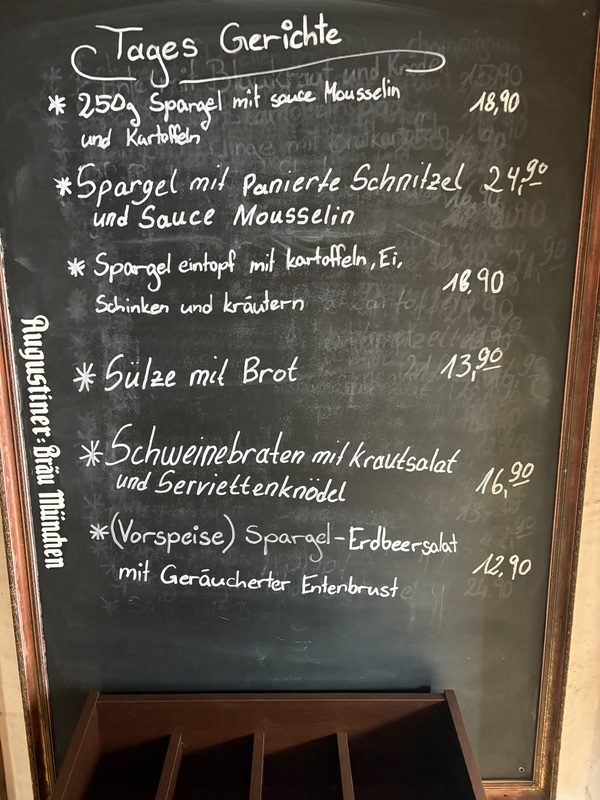 Tages Gerichte
* 250g Spargel mit sauce Mousselin 18,90
und Kartoffeln
* Spargel mit Panierte Schnitzel 24,90
und Sauce Mousselin
* Spargel eintopf mit kartoffeln, Ei,
Schinken und kräutern 18,90
* Sülze mit Brot 13,90
* Schweinebraten mit krautsalat
und Serviettenknödel 16,90
* (Vorspeise) Spargel-Erdbeersalat
mit Geräucherter Entenbrust 12,90
Augustiner-Bräu München